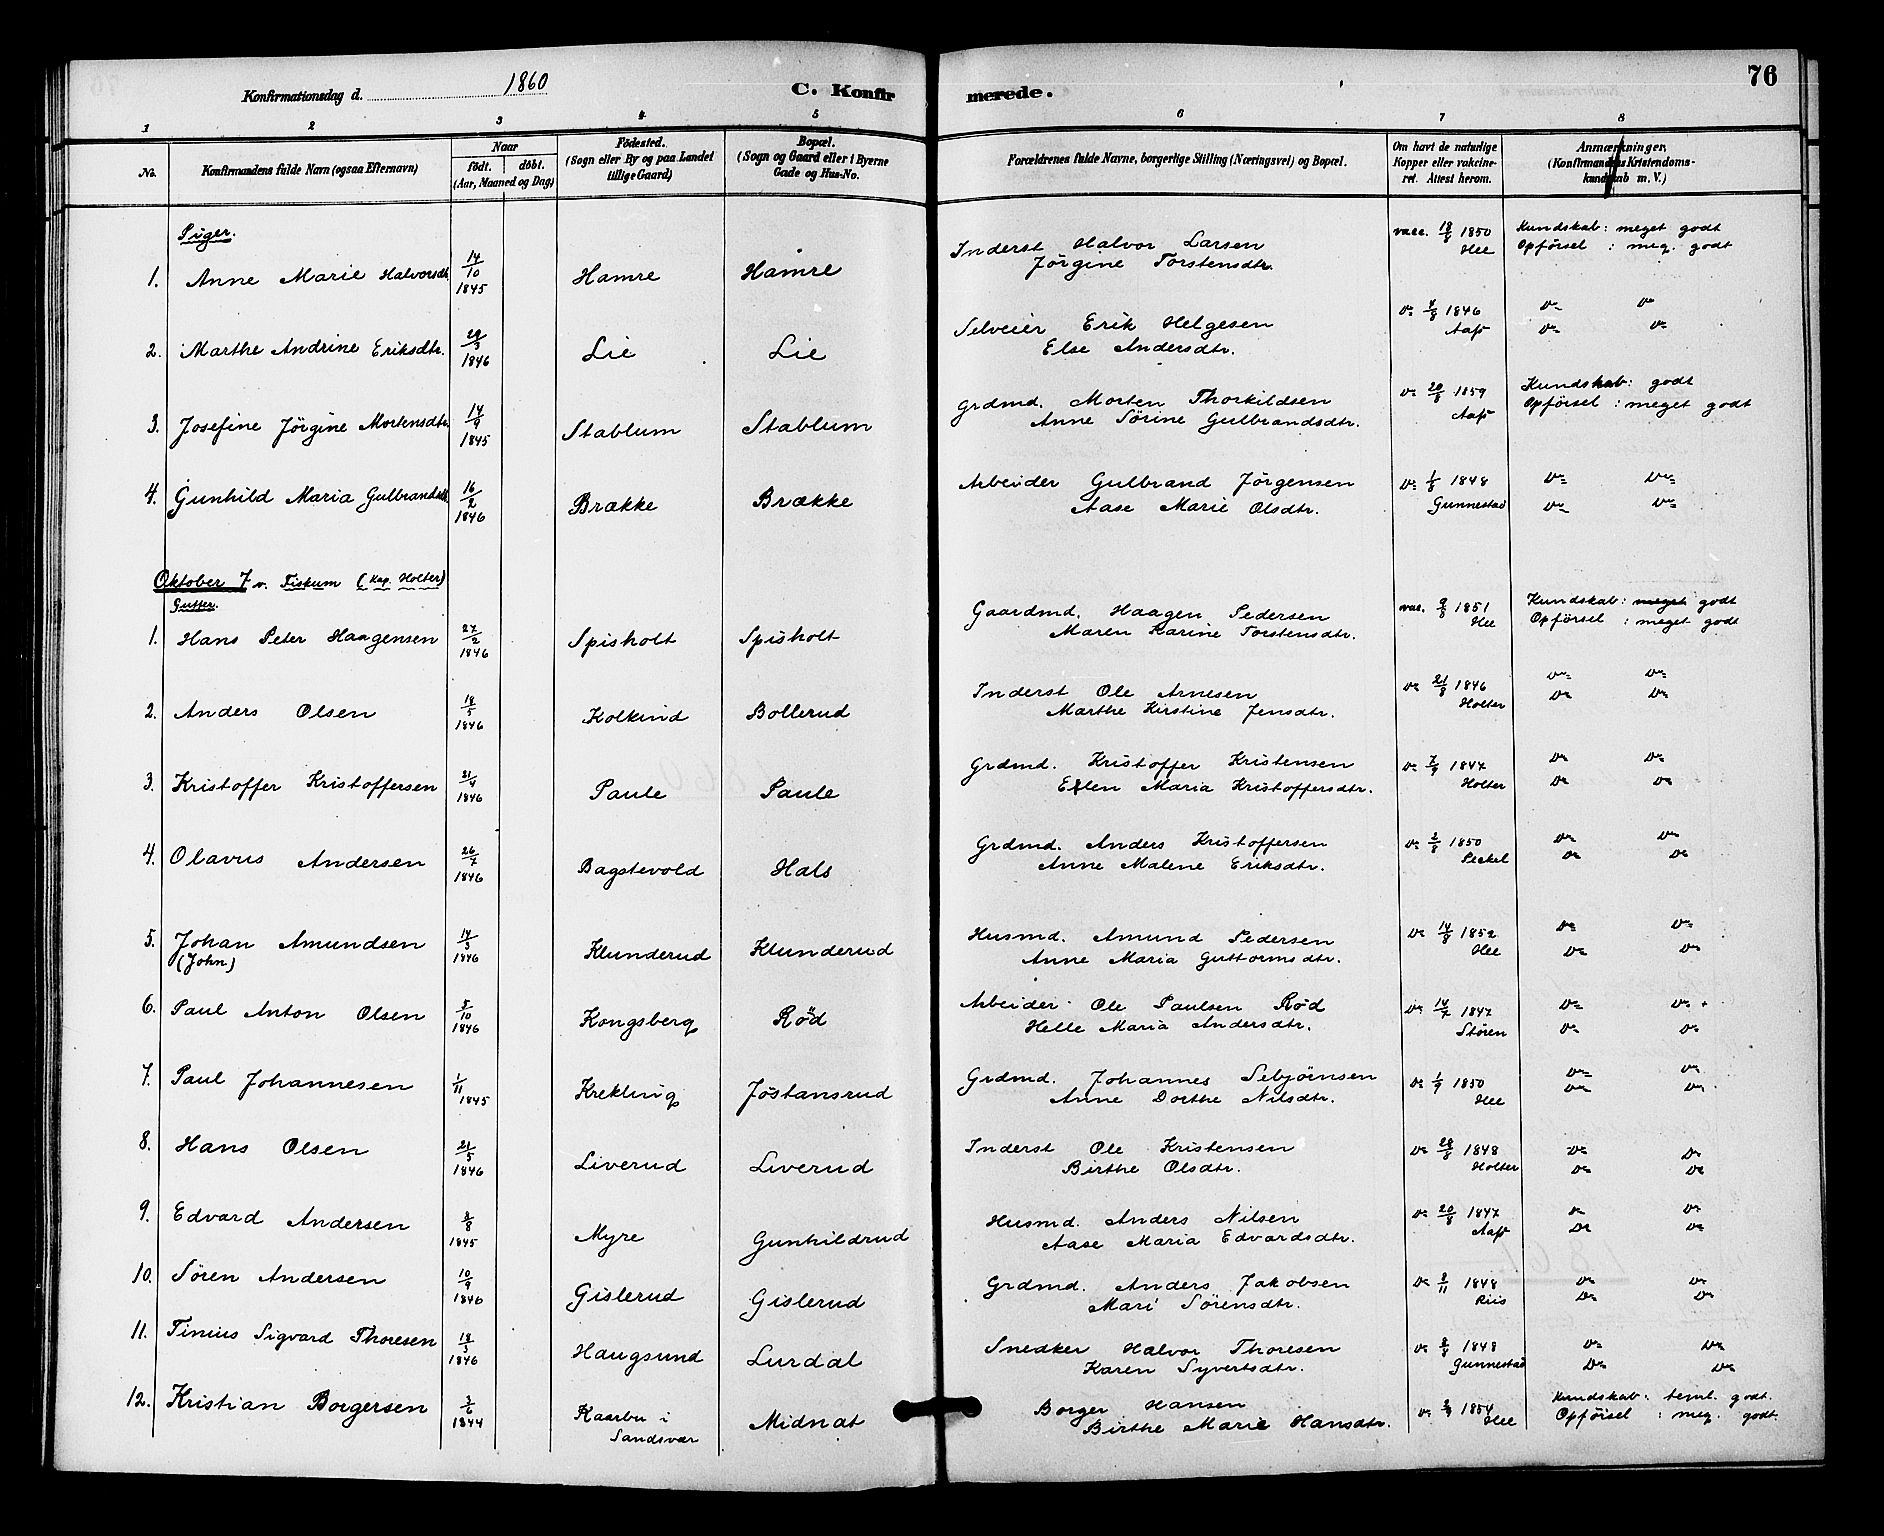 76
Konfirmationsdag d. 1860 C. Konfirmerede.
1 2 3 4 5 6 7 8
No. Konfirmandens fulde Navn (ogsaa Efternavn) Naar født. døbt. (Aar, Maaned og Dag) Fødested. (Sogn eller By og paa Landet tillige Gaard) Bopæl. (Sogn og Gaard eller i Byerne Gade og Hus-No. Forældrenes fulde Navne, borgerlige Stilling (Næringsvei) og Bopæl. Om havt de naturlige Kopper eller vakcineret. Attest herom. Anmærkninger. (Konfirmandens Kristendomskundskab m. V.)
Piger.
1. Anne Marie Halvorsdtr. 14/10 1845 Hamre Hamre Inderst Halvor Larsen Jørgine Torstensdtr. vacc. 18/8 1850 Hee Kundskab: meget godt Opførsel: meg. godt
2. Marthe Andrine Eriksdtr. 29/3 1846 Lie Lie Selveier Erik Helgesen Else Andersdtr. do 4/8 1846 Aass do do do do
3. Josefine Jørgine Mortensdtr. 14/9 1845 Stablum Stablum Grdmd. Morten Thorkildsen Anne Sørine Gulbrandsdtr. do 20/8 1859 Aass Kundskab: godt Opførsel: meget godt
4. Gunhild Maria Gulbrandsdtr. 16/2 1846 Brække Brække Arbeider Gulbrand Jørgensen Aase Marie Olsdtr. do 1/8 1848 Gunnestad do do do do
Oktober 7 v. Fiskum (Kap. Holter)
Gutter.
1. Hans Peter Haagensen 27/2 1846 Spisholt Spisholt Gaardmd. Haagen Pedersen Maren Karine Torstensdtr. vac. 9/8 1851 Hee Kundskab: meget godt Opførsel: meget godt
2. Anders Olsen 18/5 1846 Kolkind Bollerud Inderst Ole Arnesen Marthe Kirstine Jensdtr. do 21/8 1846 Holter do do do do
3. Kristoffer Kristoffersen 21/4 1846 Paule Paule Grdmd. Kristoffer Kristensen Ellen Maria Kristoffersdtr. do 7/9 1847 Holter do do do do
4. Olavus Andersen 26/7 1846 Bagstevold Hals Grdmd. Anders Kristoffersen Anne Malene Eriksdtr. do 2/8 1850 do do do do
5. Johan Amundsen (John) 14/3 1846 Klunderud Klunderud Husmd. Amund Pedersen Anne Maria Guttormsdtr. do 14/8 1852 Hee do do do do
6. Paul Anton Olsen 5/10 1846 Kongsberg Rød Arbeider Ole Paulsen Rød Helle Maria Andersdtr. do 14/7 1847 Støren do do do do
7. Paul Johannesen 1/11 1845 Krekling Jøstansrud Grdmd. Johannes Sebjørnsen Anne Dorthe Nilsdtr. do 1/9 1850 Hee do do do do
8. Hans Olsen 21/5 1846 Liverud Liverud Inderst Ole Kristensen Birthe Olsdtr. do 28/8 1848 Holter do do do do
9. Edvard Andersen 8/8 1845 Myre Gunhildrud Husmd. Anders Nilsen Aase Maria Edvardsdtr. do 20/8 1847 Aass do do do do
10. Søren Andersen 10/9 1846 Gislerud Gislerud Grdmd. Anders Jakobsen Mari Sørensdtr. do 2/11 1848 Riis do do do do
11. Tinius Sigvard Thoresen 18/3 1846 Haugsund Lurdal Snedker Halvor Thoresen Karen Syvertsdtr. do 8/8 1848 Gunnestad do do do do
12. Kristian Borgersen 3/6 1844 Kaarbu i Sandsvær Midnat Borger Hansen Birthe Marie Hansdtr. do 1854 Hee Kundskab: teml. godt. Opførsel: meg. godt.